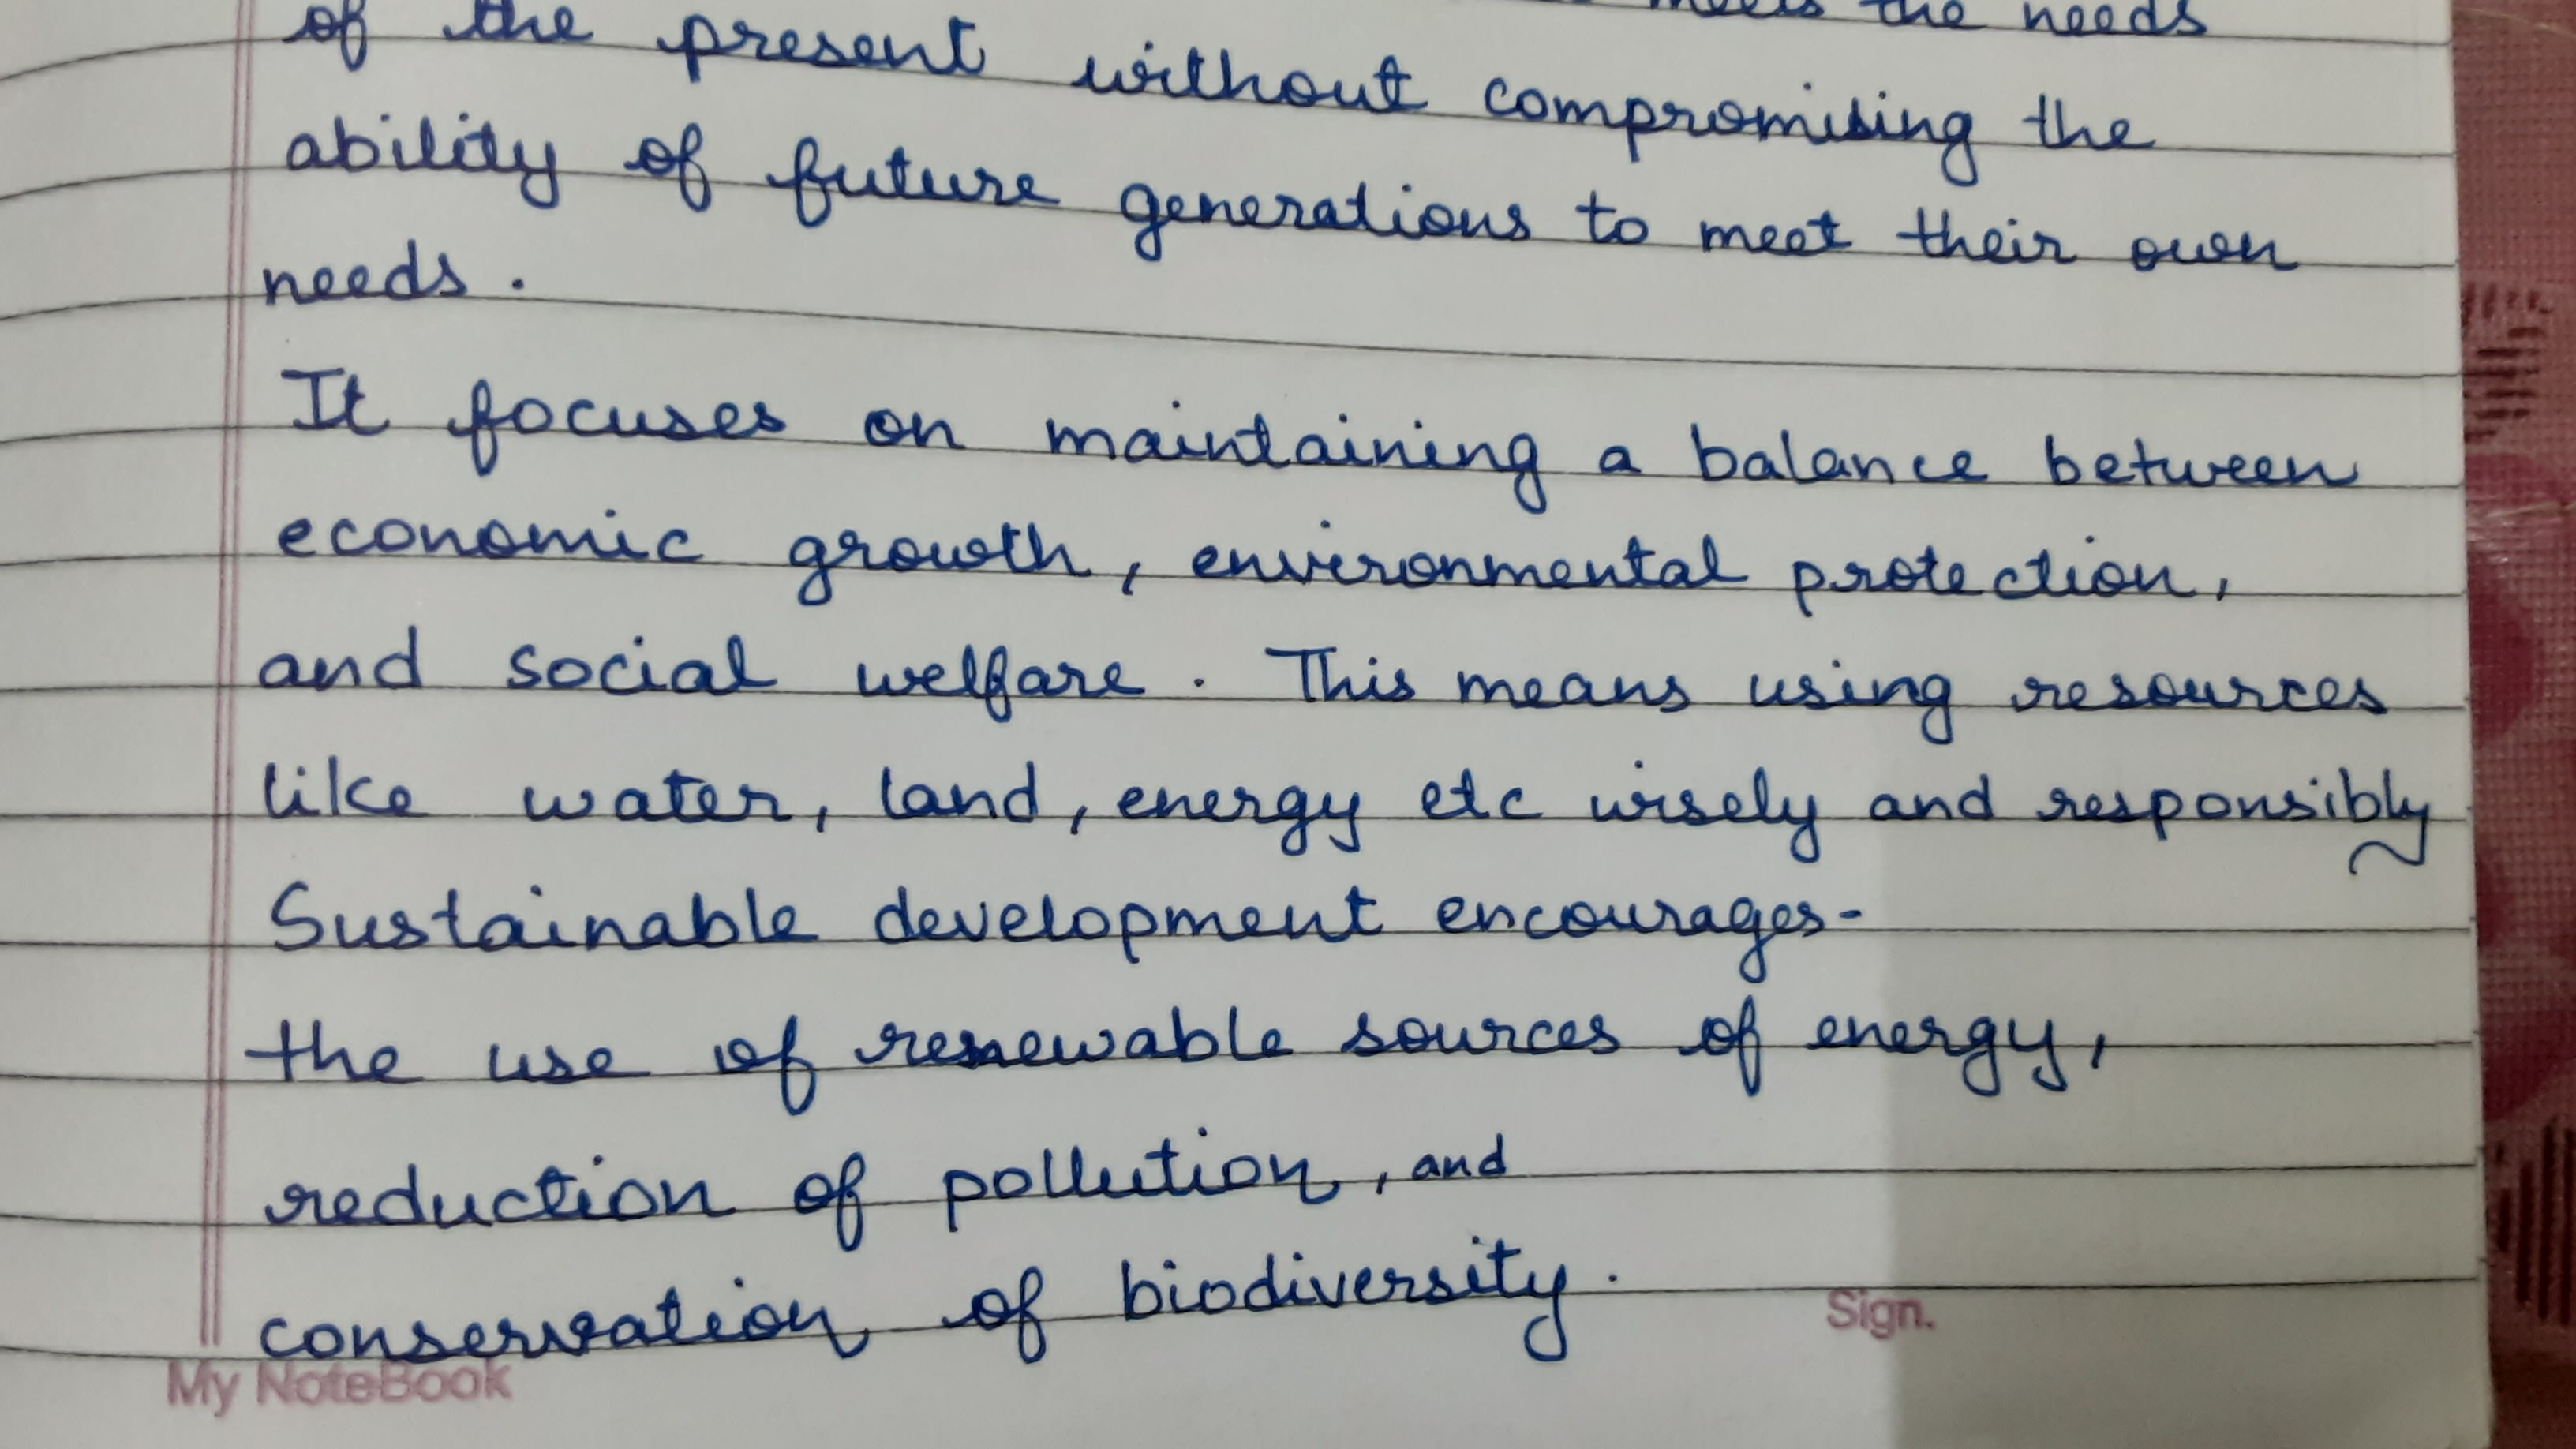 meets the needs
of the present without compromising the
ability of future generations to meet their own
needs.
It focuses on maintaining a balance between
economic growth, environmental protection,
and social welfare. This means using resources
like water, land, energy etc wisely and responsibly
Sustainable development encourages-
the use of renewable sources of energy,
reduction of pollution, and
conservation of biodiversity.
Sign.
My NoteBook